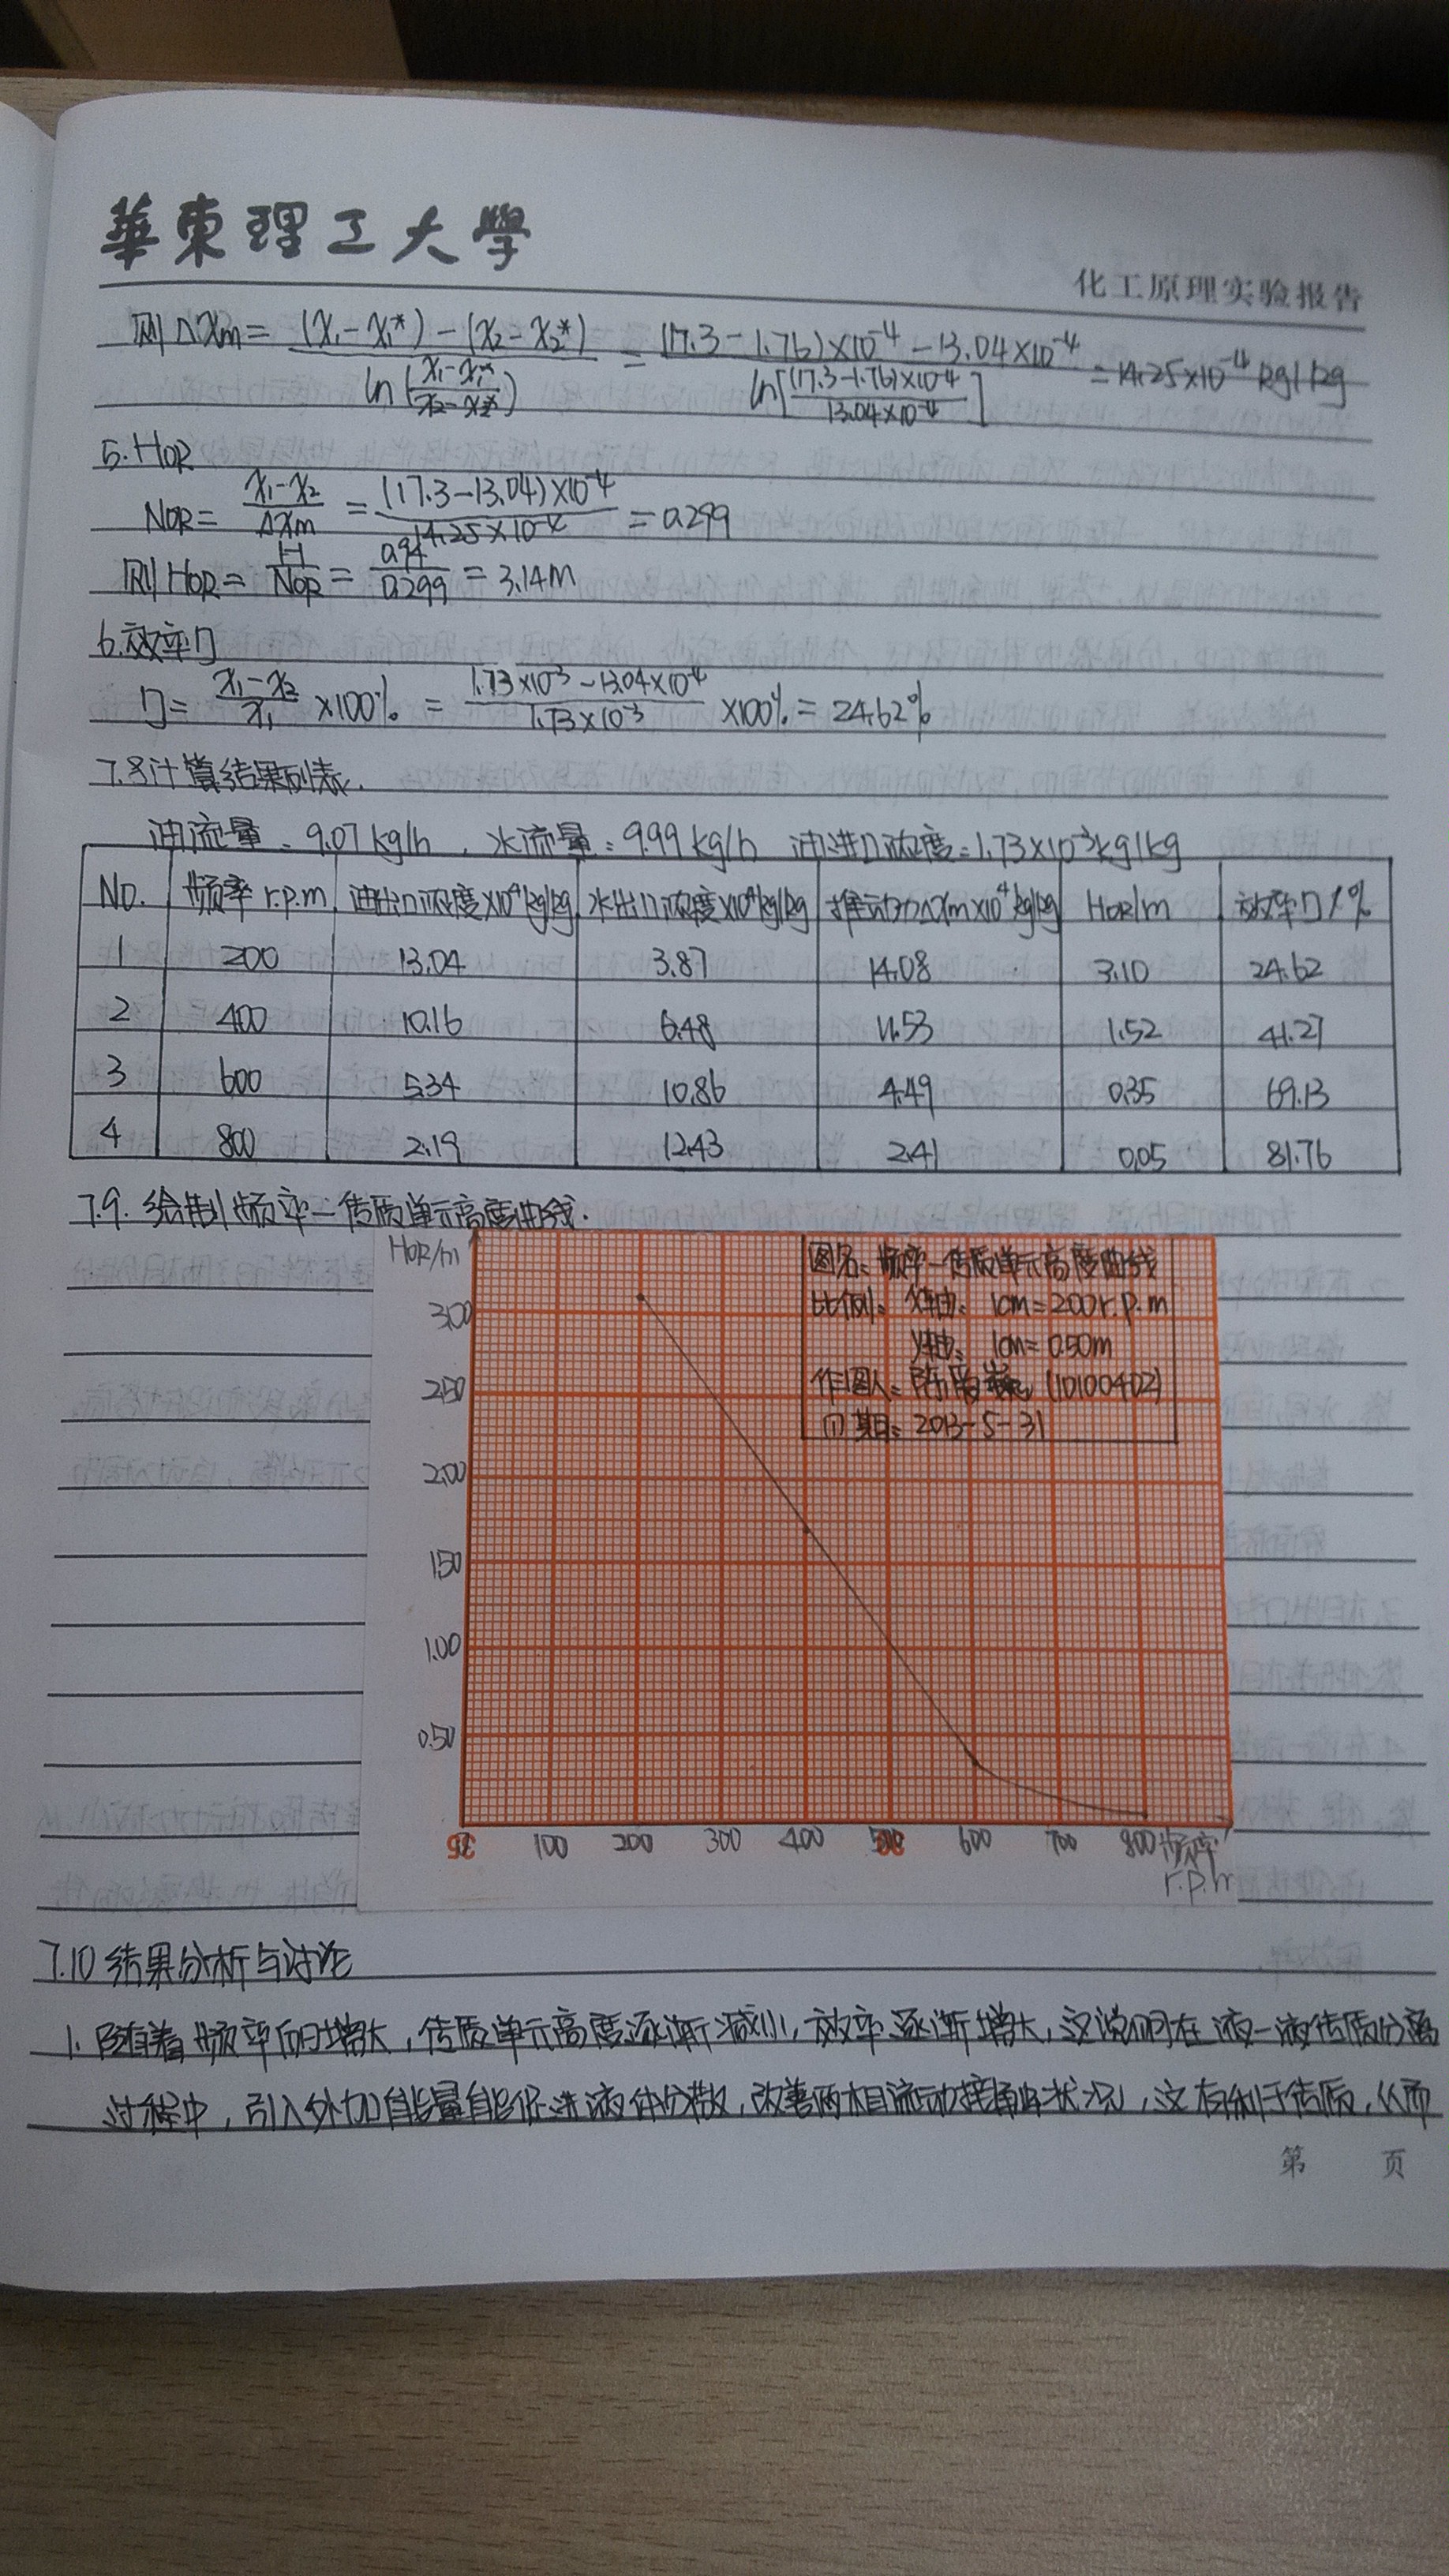 華東理工大學
化工原理实验报告
则ΔXm = (X₁-X₁*)-(X₂-X₂*) / ln(X₁-X₁*/X₂-X₂*) = (17.3-1.76)×10⁻⁴-13.04×10⁻⁴ / ln[(17.3-1.76)×10⁻⁴/13.04×10⁻⁴] = 14.25×10⁻⁴ kg/kg
5.HOR
NOR = X₁-X₂/ΔXm = (17.3-13.04)×10⁻⁴/14.25×10⁻⁴ = 0.299
则HOR = H/NOR = 0.94/0.299 = 3.14m
6.效率η
η = X₁-X₂/X₁ ×100% = 1.73×10⁻³-13.04×10⁻⁴/1.73×10⁻³ ×100% = 24.62%
7.8计算结果列表.
油流量: 9.07kg/h , 水流量: 9.99kg/h 油进口浓度=1.73×10⁻³kg/kg
NO. 频率r.p.m 油出口浓度×10⁴kg/kg 水出口浓度×10⁴kg/kg 推动力ΔXm×10⁴kg/kg HOR/m 效率η/%
1 200 13.04 3.87 14.08 3.10 24.62
2 400 10.16 6.48 11.53 1.52 41.27
3 600 5.34 10.86 4.49 0.35 69.13
4 800 2.19 12.43 2.41 0.05 81.76
7.9. 绘制频率-传质单元高度曲线.
HOR/m
图名: 频率-传质单元高度曲线
比例: X轴: 1cm=200r.p.m
Y轴: 1cm=0.50m
作图人: 陈 (10100402)
日期: 2013-5-31
3.00
2.50
2.00
1.50
1.00
0.50
100 200 300 400 500 600 700 800 频率
r.p.m
7.10 结果分析与讨论
1. 随着频率的增大,传质单元高度逐渐减小,效率逐渐增大,这说明在液-液传质分离
过程中,引入外加能量能促进液体分散,改善两相流动接触状况,这有利于传质,从而
第 页